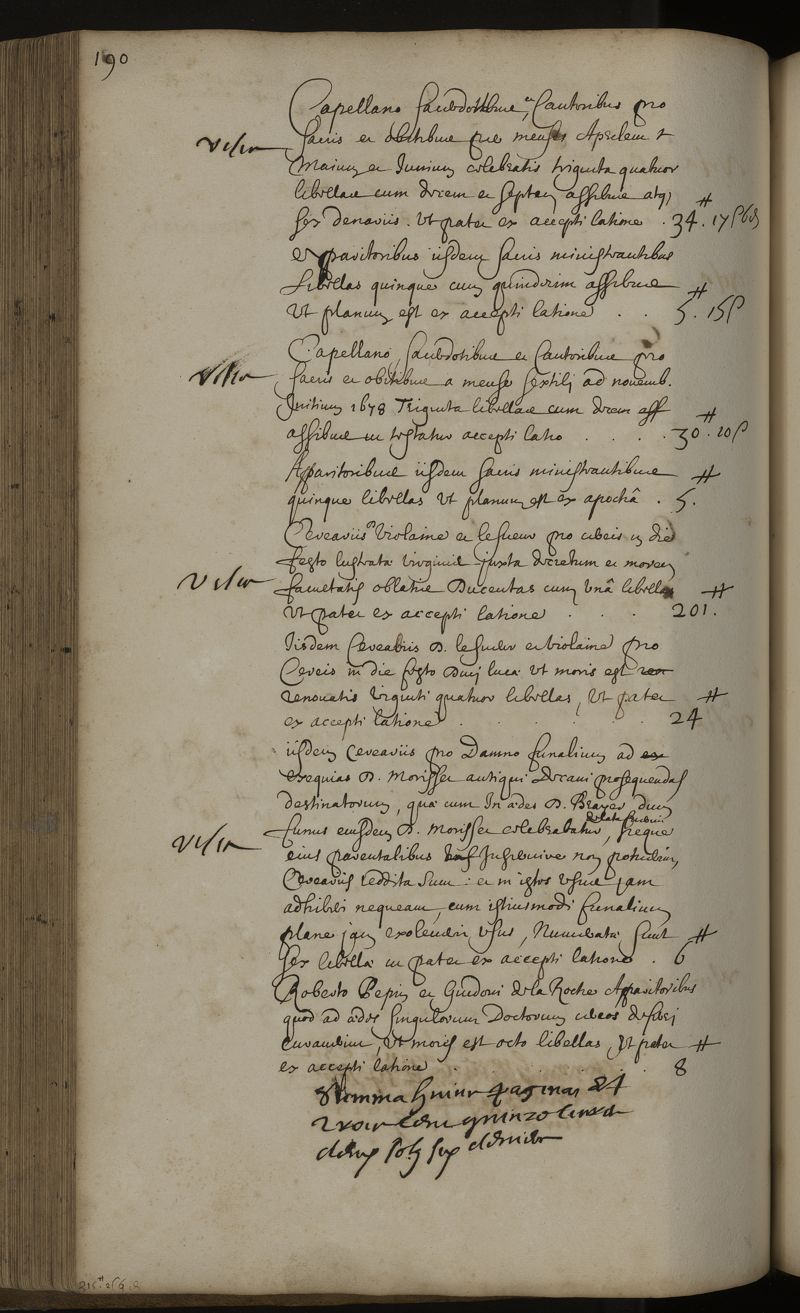 190
Capellano Sacerdotibus, et Cantoribus pro
Visa
sacris et obitibus per menses Aprilem &
Maium et Junium celebratis triginta quatuor
libellae cum decem et septem assibus atq;
sex denariis. Ut patet ex accepti latione . 34 ₶ . 17 s 6 d
et apparitoribus iisdem sacris ministrantibus
Libellas quinque cum quindecim assibus
Ut planum est ex accepti latione . . 5 ₶ . 15 s
Capellano, Sacerdotibus et Cantoribus pro
Visa
sacris et obitibus a mense sextili ad novemb.
Initium 1678 Triginta libellae cum decem ass
assibus ut testatur accepti latio . . . . 30 ₶ . 10 s
Apparitoribus iisdem sacris ministrantibus
quinque libellas Ut planum est ex apochâ . 5 ₶.
Cereariis D Violaine et le Sueur pro cereis in die
festo lustratae virginis juxta decretum et morem
Visa
facultatis oblatis Ducentas cum unâ libella
Ut patet ex accepti latione . . . 201 ₶.
Iisdem Cereariis D. le Sueur et Violaine pro
Cereis in die festo Divi lucae ut moris est ren
renovatis viginti quatuor libellas, Ut patet
ex accepti latione . . . . . . 24 ₶
iisdem Cereariis pro Damno funalium ad ex
exequias D. Morisset antiqui Decani prosequendas
destinatorum, quae cum In aedes D. Brayer, dum
Visa
funus eiusdem D. Morisset celebrabatur, neque
eius parentalibus Inservire non potuerint,
Cereariis reddita sunt : et in istos usus jam
adhiberi nequeant, cum istiusmodi funalium
plane jam exoleverit usus, Numeratae sunt
sex libellae ut patet ex accepti latione . 6 ₶
Roberto Pepin et Guidoni de la Roche Apparitoribus
quod ad aedes singulorum Doctorum cereos deferri
curaverint, Ut moris est octo libellas, Ut patet
ex accepti latione . . . . . . 8 ₶
Summa huius paginae est
trois cens quinze livres
deux sols six deniers
315 ₶ 2 s 6 d